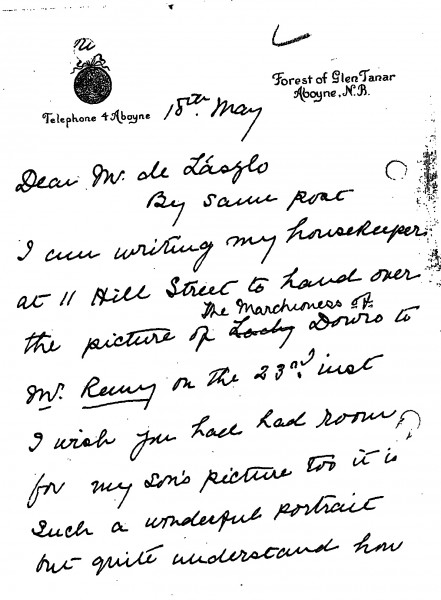 Forest of Glen Tanar
Aboyne, N.B.
Telephone 4 Aboyne
18th May
Dear Mr. de László
By same post
I am writing my housekeeper
at 11 Hill Street to hand over
The Marchioness of
the picture of Lady Douro to
Mr. Remy on the 23rd inst
I wish you had had room
for my Son's picture too it is
Such a wonderful portrait
but quite understand how